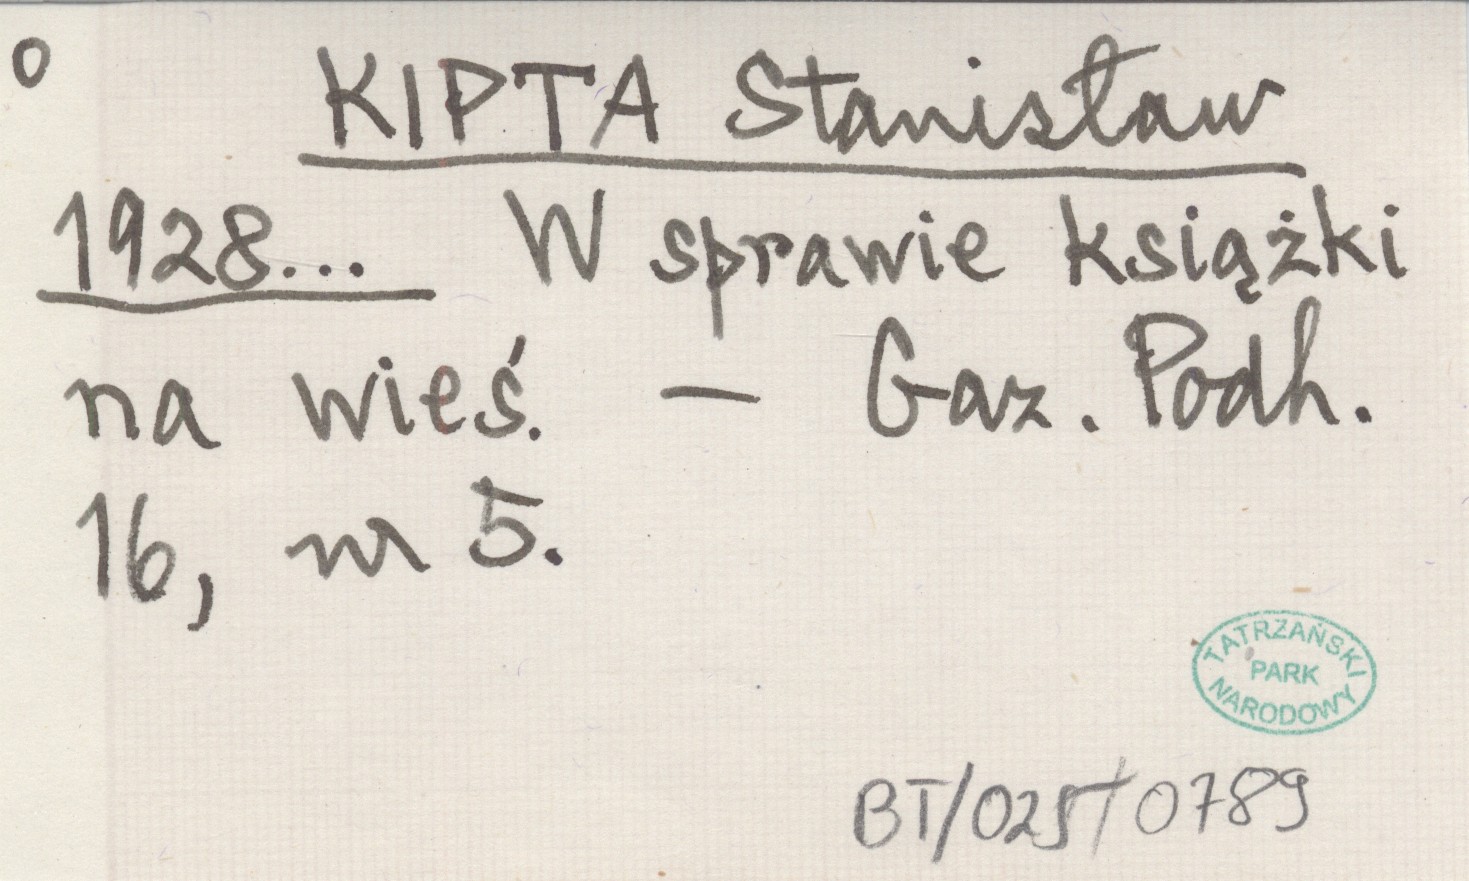 o
KIPTA Stanisław
1928... W sprawie książki
na wieś. — Gaz. Podh.
16, nr 5.
TATRZAŃSKI
PARK
NARODOWY
BT/025/0789